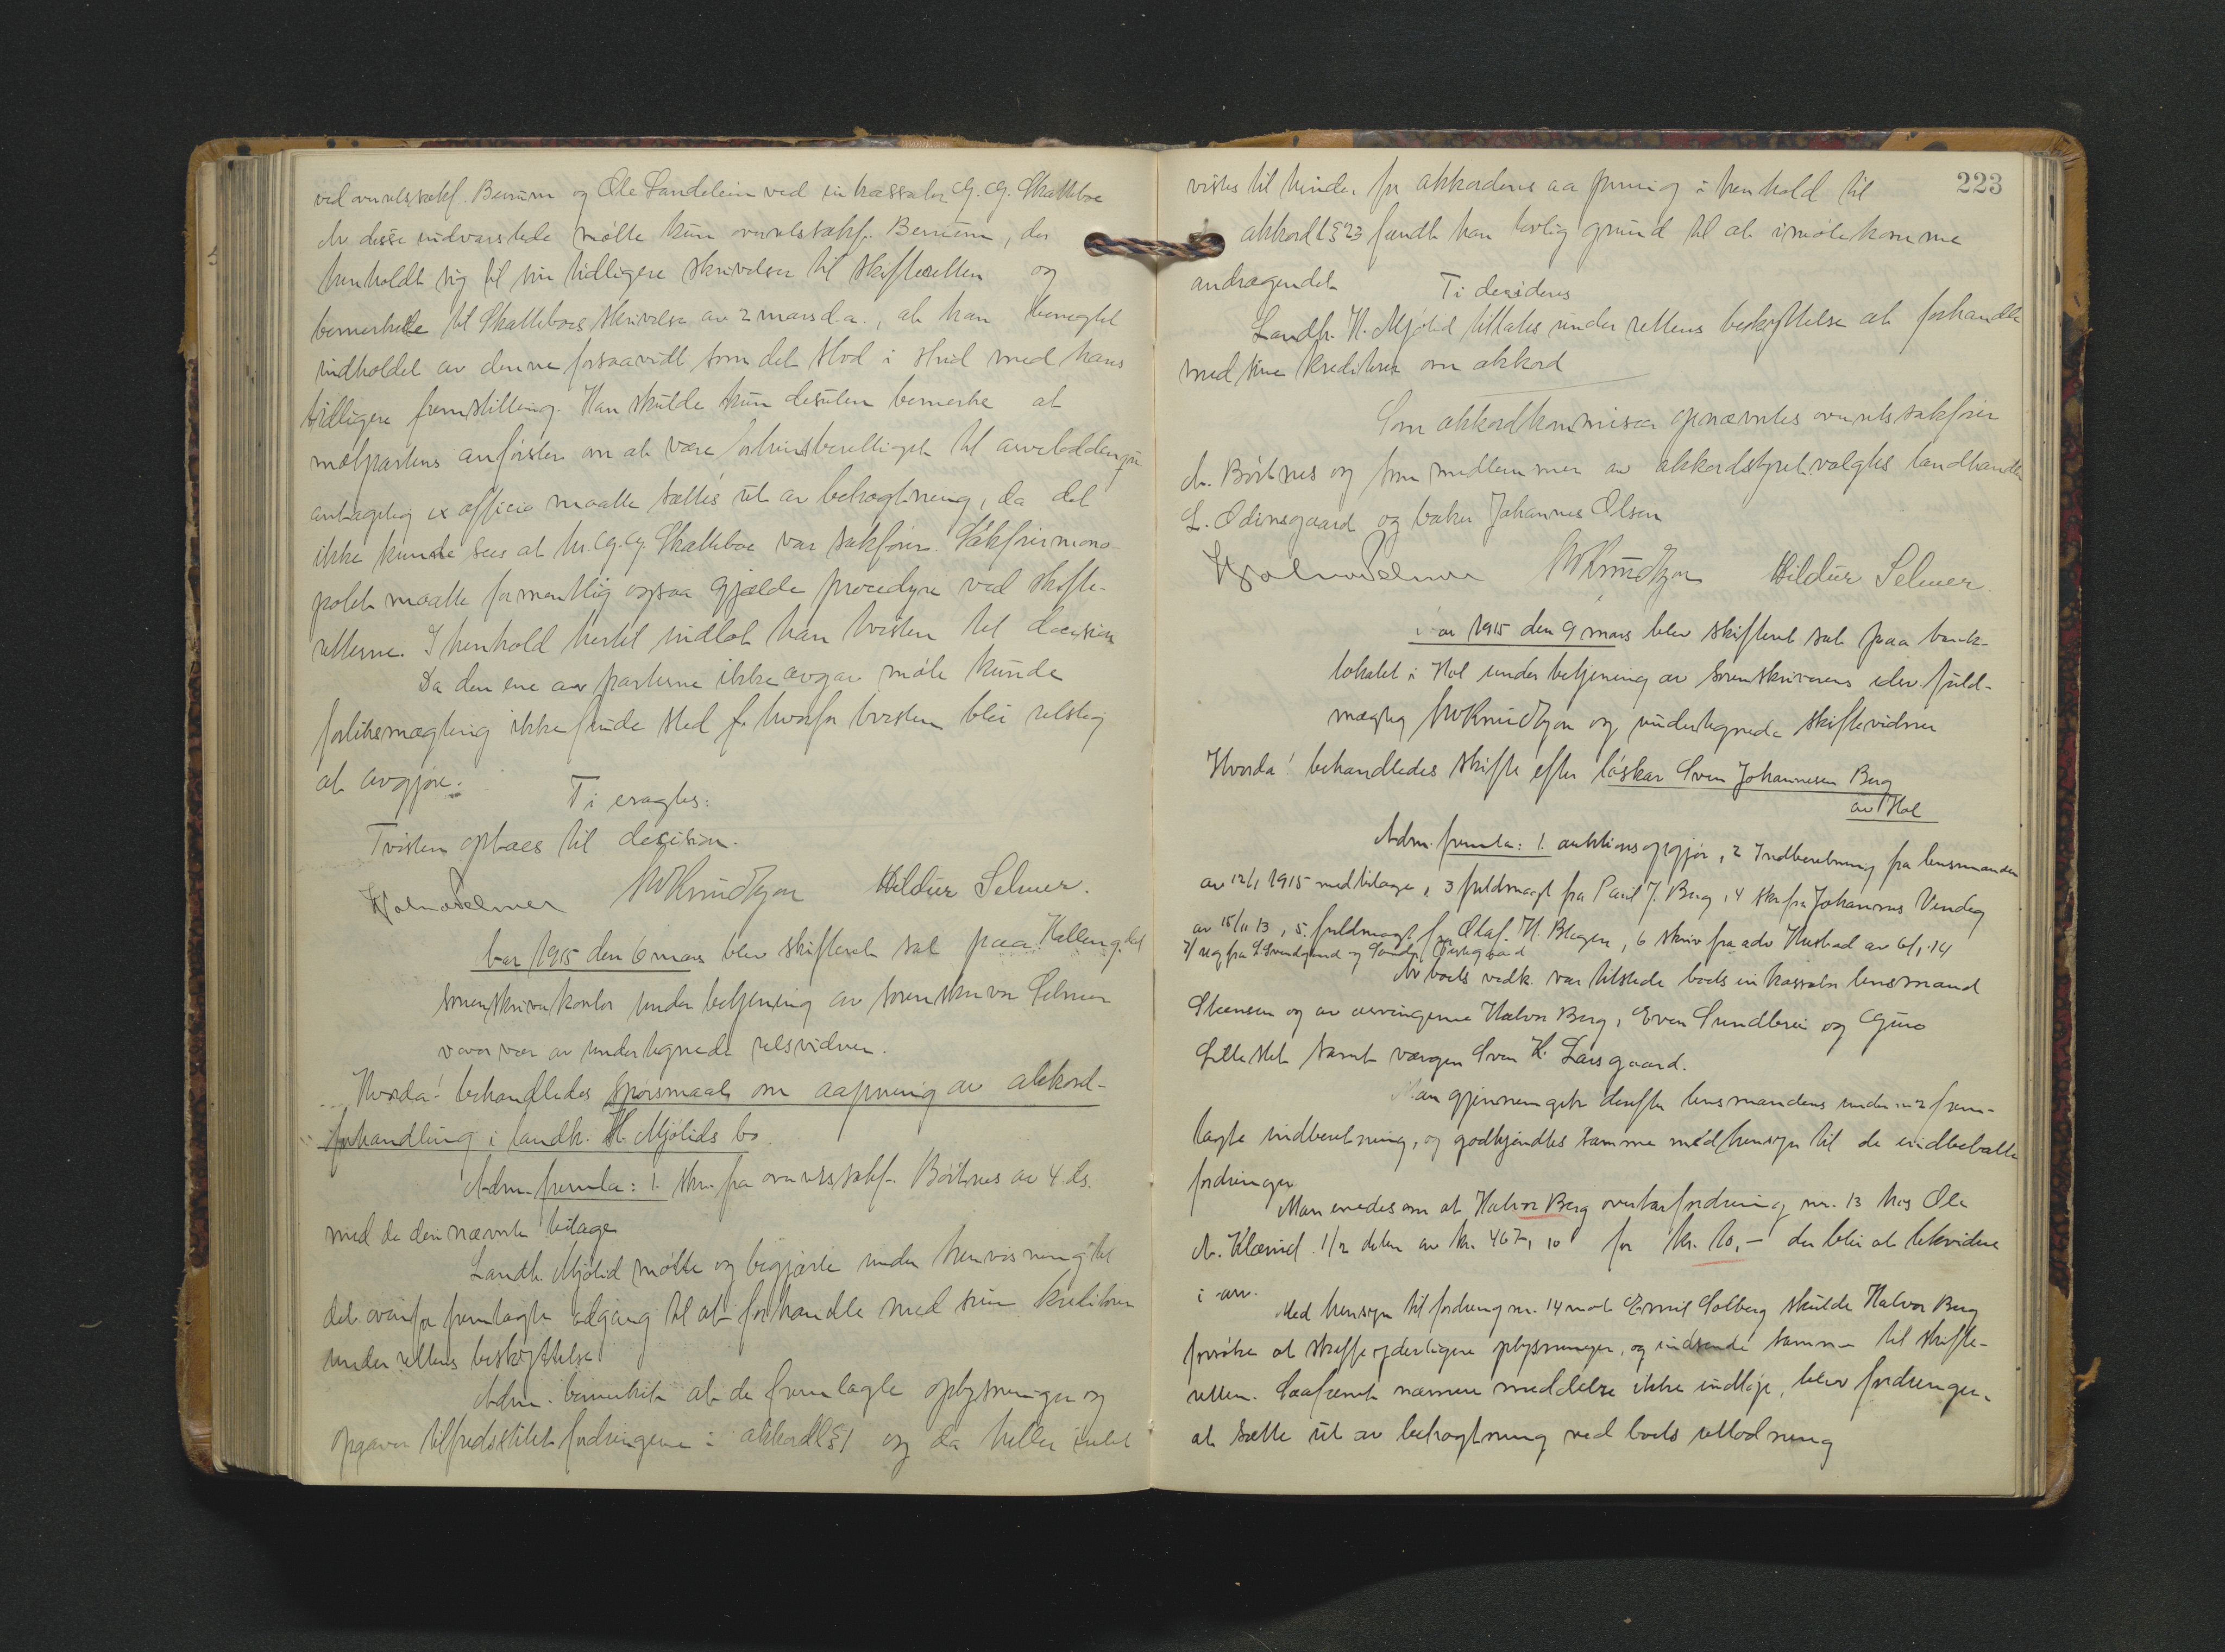 ved overretssakf. Berrum og Ole Sandelien ved inkassator G. G. Skattebo
Av disse indvarslede møtte kun overretssakf. Berrum, der
henholdt sig til sin tidligere skrivelse til skifteretten og
bemerket til Skattebos skrivelse av 2 mars d.a., at han benegtet
indholdet av denne forsaavidt som det stod i strid med hans
tidligere fremstilling. Han skulde kun desuten bemerke at
motpartens anførsler om at være berettiget til
antagelig ex officio maatte sættes ut av betragtning, da det
ikke kunde sees at hr. G. G. Skattebo var sakfører. Sakførermono-
polet maatte formentlig ogsaa gjælde procedyre ved skifte-
retterne. I henhold hertil indlot han tvisten til decision
Da den ene av parterne ikke avgav møte kunde
forliksmægling ikke finde sted hvorfor tvisten blir retslig
at avgjøre.
Ti eragtes:
Tvisten optaes til decision.
Hjalmar Selmer Knudtzon Hildur Selmer.
Aar 1915 den 6 mars blev skifteret sat paa Hallingdal
sorenskriverkontor under betjening av sorenskriver Selmer
i overvær av undertegnede retsvidner.
Hvorda! behandledes Spørsmaal om aapning av akkord-
forhandling i landh. H. Mjølids bo
Adm. fremla: 1. skr. fra overretssakf. Børtnes av 4 ds.
med de deri nævnte bilage
Landh. Mjølid møtte og begjærte under henvisning til
det ovenfor fremlagte adgang til at forhandle med sine kreditorer
under rettens beskyttelse
Adm. bemerket at de fremlagte oplysninger og
opgaver tilfredsstillet fordringene i akkordl § 1 og da heller intet
223
vistes til hinder for akkordens aapning i henhold til
akkordl § 23 fandt han lovlig grund til at imøtekomme
andragendet
Ti decideres
Landh. H. Mjølid tillates under rettens beskyttelse at forhandle
med sine kreditorer om akkord
Som akkordkommissær opnævntes overretssakfører
A. Børtnes og som medlemmer av akkordstyret valgtes landhandler
L. Odinsgaard og baker Johannes Olsen
Hjalmar Selmer Knudtzon Hildur Selmer.
Aar 1915 den 9 mars blev skifteret sat paa bank-
lokalet i Hol under betjening av sorenskriverens edsv. fuld-
mægtig Knudtzon og undertegnede skiftevidner
Hvorda! behandledes skifte efter løskar Sven Johannesen Berg
av Hol
Adm. fremla: 1. auktionsopgjør, 2 Indberetning fra lensmanden
av 12/1 1915 med bilage, 3 fuldmagt fra Paul J. Berg, 4 skr fra Johannes Vindeg
av 15/11 13, 5. fuldmagt fra Olaf. H. Hagen, 6 skriv fra adv Husbad av 6/1 14
Av boets vedk. var tilstede boets inkassator lensmand
Steensen og av arvingerne Halvor Berg, Even Sundbrei og Guro
Lilleslet samt vergen Sven K. Larsgaard.
Man gjennemgik derefter lensmandens under nr 2 frem-
lagte indberetning, og godkjendtes samme med hensyn til de indbetalte
fordringer
Man enedes om at Halvor Berg overtar fordring nr. 13 hos Ole
A. Klævud 1/2 delen av kr. 467,10 for kr. 10,- der blir at likvidere
i arv.
Med hensyn til fordring nr. 14 mot Emil Solberg skulde Halvor Berg
forsøke at skaffe yderligere oplysninger, og indsende samme til skifte-
retten. Saafremt nærmere meddelse ikke indløp, blev fordringen
at sætte ut av betragtning ved boets utlodning